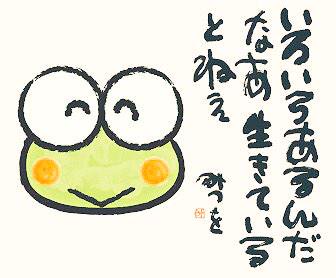 いろいろあるんだ
なあ生きている
とねえ
みつを